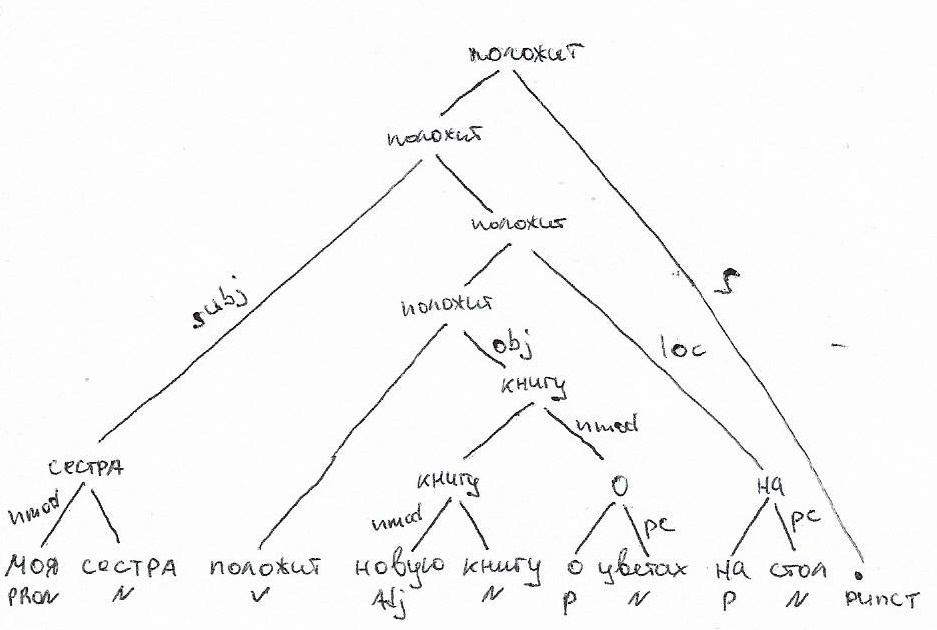 положит
положит
положит
subj
S
положит
obj
loc
книгу
nmod
сестра
книгу
О
на
nmod
nmod
pc
pc
моя сестра положит новую книгу о цветах на стол .
PRON N V Adj N P N P N PUNCT